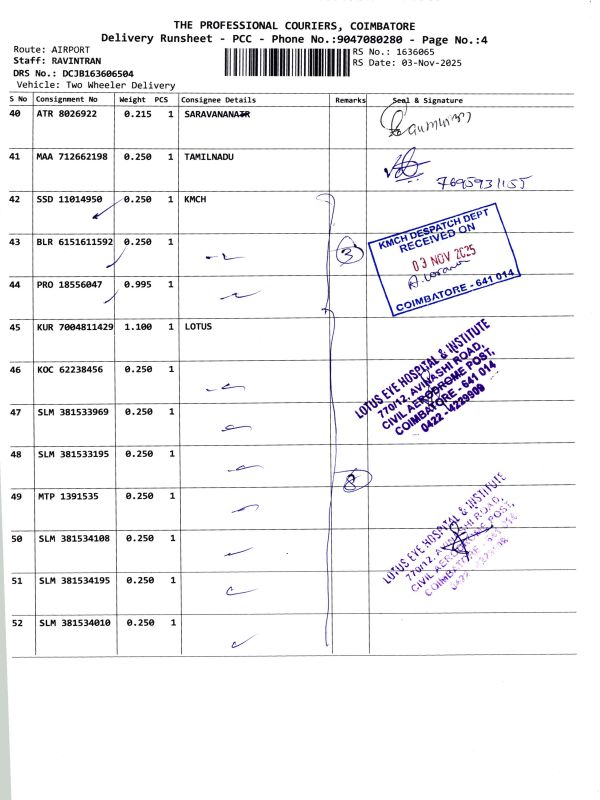 THE PROFESSIONAL COURIERS, COIMBATORE
Delivery Runsheet - PCC - Phone No.:9047080280 - Page No.:4
Route: AIRPORT
RS No.: 1636065
Staff: RAVINTRAN
RS Date: 03-Nov-2025
DRS No.: DCJB163606504
Vehicle: Two Wheeler Delivery
S No Consignment No Weight PCS Consignee Details Remarks Seal & Signature
40 ATR 8026922 0.215 1 SARAVANANATR
41 MAA 712662198 0.250 1 TAMILNADU
7695931155
42 SSD 11014950 0.250 1 KMCH
43 BLR 6151611592 0.250 1
3
KMCH DESPATCH DEPT
RECEIVED ON
03 NOV 2025
COIMBATORE - 641 014
44 PRO 18556047 0.995 1
45 KUR 7004811429 1.100 1 LOTUS
LOTUS EYE HOSPITAL & INSTITUTE
770/12, AVINASHI ROAD,
CIVIL AERODROME POST,
COIMBATORE - 641 014
0422 - 4229909
46 KOC 62238456 0.250 1
47 SLM 381533969 0.250 1
48 SLM 381533195 0.250 1
8
49 MTP 1391535 0.250 1
LOTUS EYE HOSPITAL & INSTITUTE
770/12, AVINASHI ROAD,
CIVIL AERODROME POST,
50 SLM 381534108 0.250 1
51 SLM 381534195 0.250 1
52 SLM 381534010 0.250 1